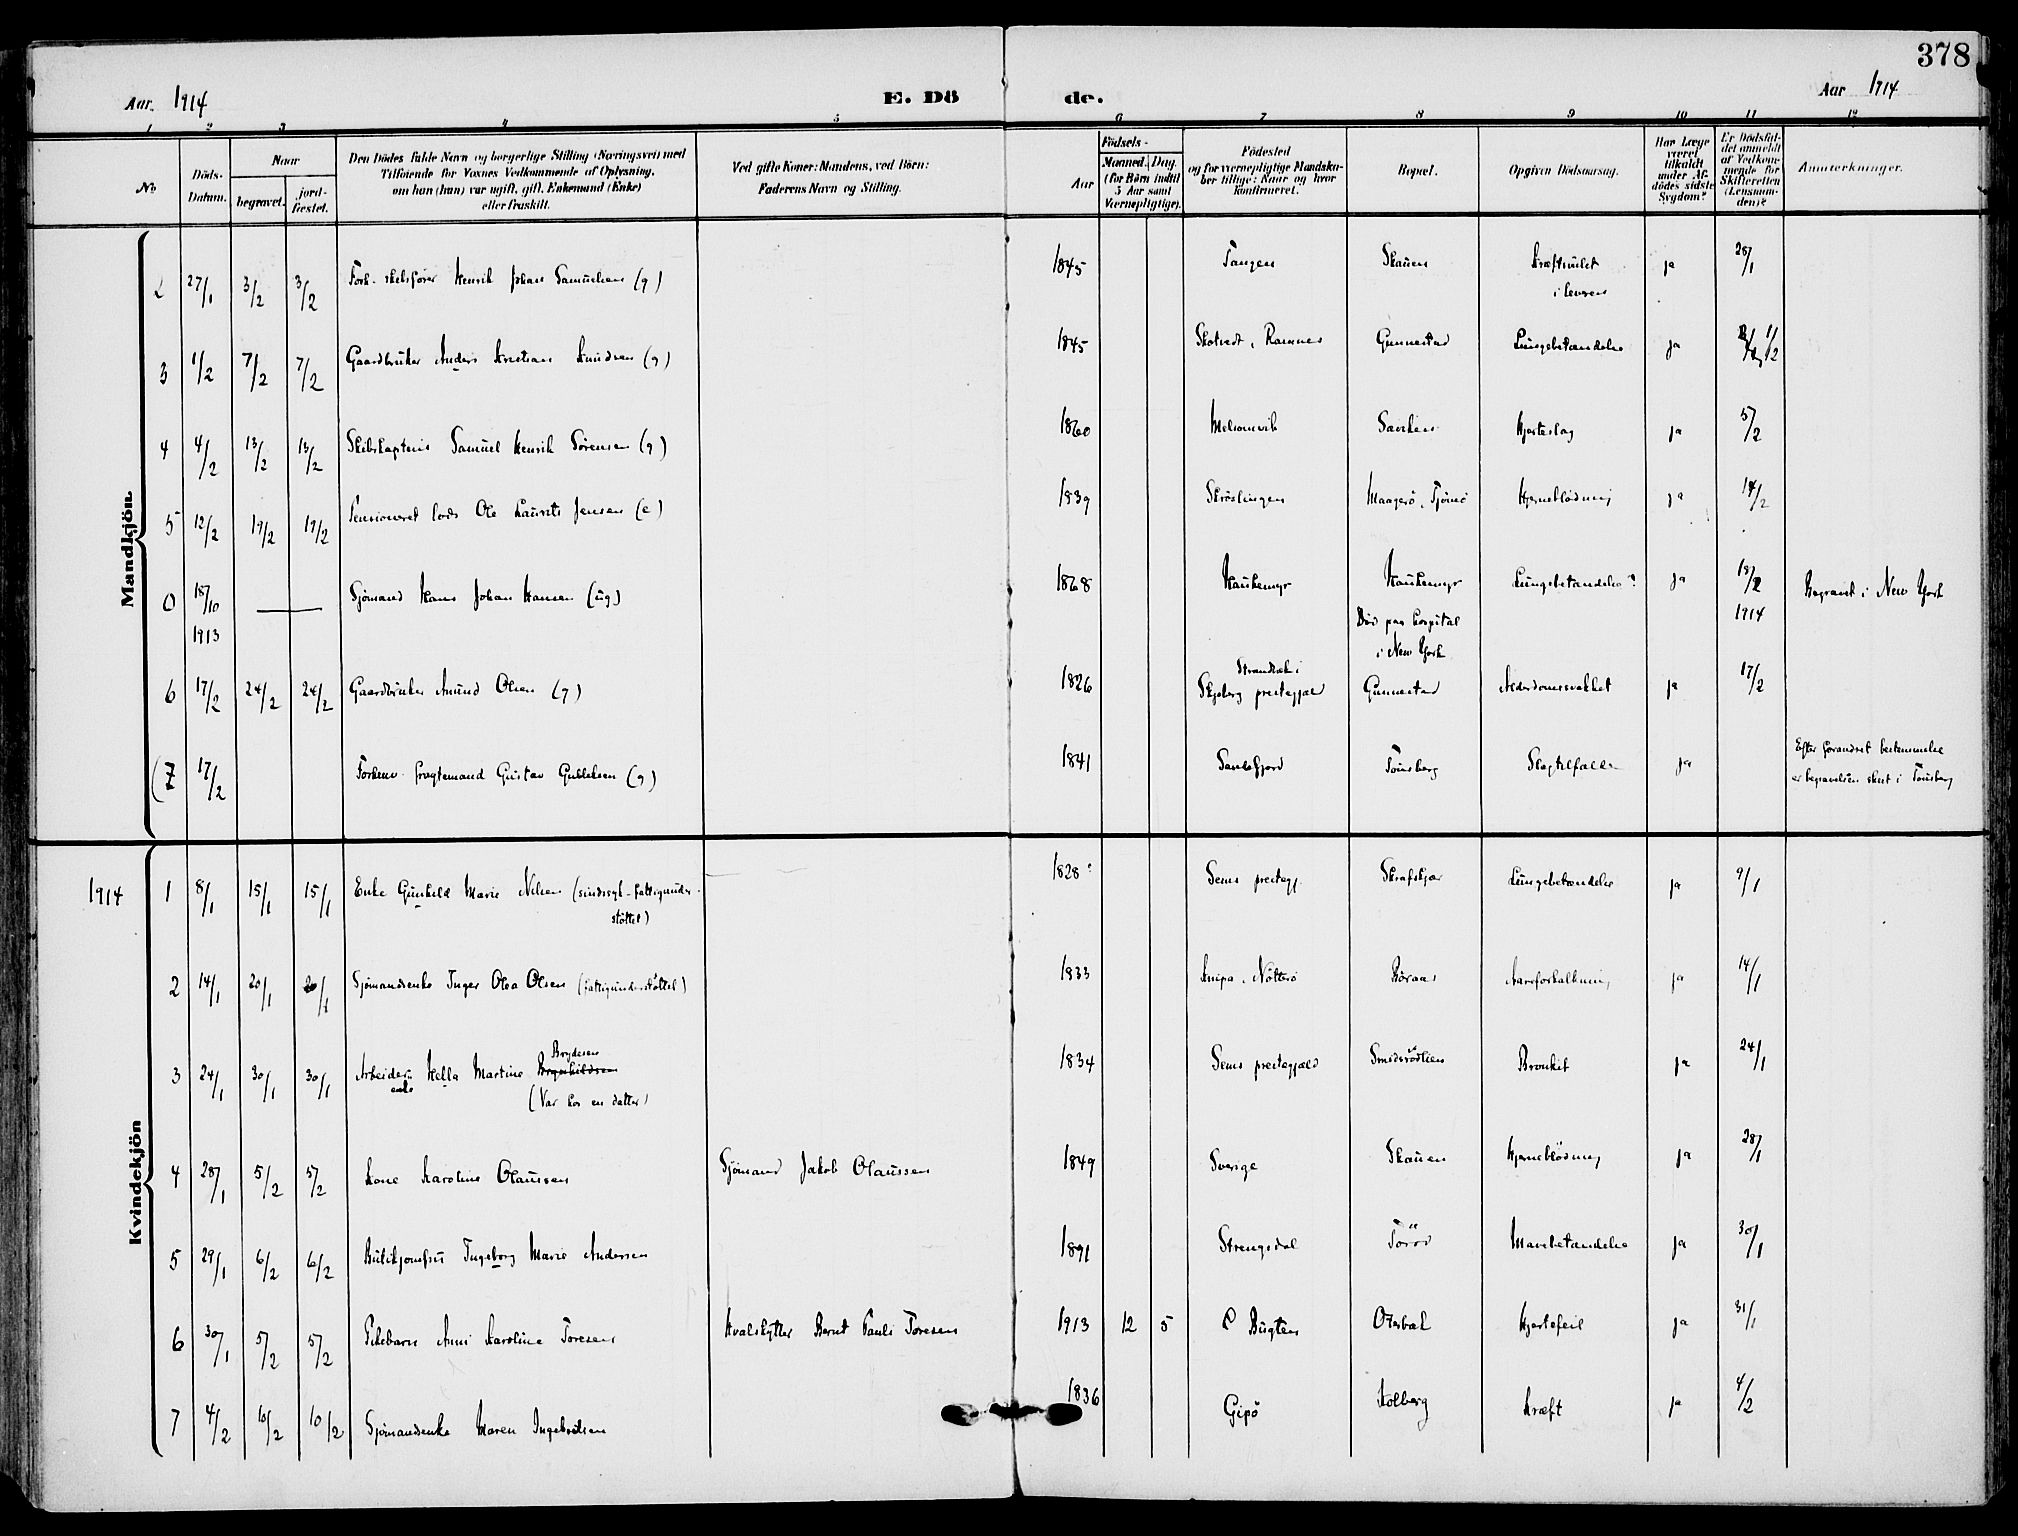 378
Aar 1914
E. Dö de.
Aar 1914
1 2 3 4 5 6 7 8 9 10 11 12
No
Döds-Datum.
Naar
begravet.
jord-fæstet.
Den Dödes fulde Navn og borgerlige Stilling (Næringsvei) med
Tilföiende for Voxnes Vedkommende af Oplysning,
om han (hun) var ugift, gift, Enkemand (Enke)
eller fraskilt.
Ved gifte Koner: Mandens, ved Börn:
Faderens Navn og Stilling.
Aar
Födsels-
Maaned. Dag.
(for Börn indtil
5 Aar samt
Værnepligtige).
Födested
og for værnepligtige Mandska-
ber tillige: Naar og hvor
konfirmeret.
Bopæl.
Opgiven Dödsaarsag.
Har Læge
været
tilkaldt
under Af-
dödes sidste
Sygdom?
Er Dödsfal-
det anmeldt
af Vedkom-
mende for
Skifteretten
(Lensman-
den)?
Anmerkninger.
Mandkjön
2 27/1 3/2 3/2 Forh. skibsfører Henrik Johan Samuelsen (g) 1845 Tangen Skauen Kræftsvulst i leveren ja 28/1
3 1/2 7/2 7/2 Gaardbruker Anders Kristian Knudsen (g) 1845 Skotvedt, Ramnes Gunnestad Lungebetændelse ja 1/2
4 4/2 13/2 13/2 Skibskaptein Samuel Henrik Sørensen (g) 1860 Melsomvik Hjerteslag ja 5/2
5 12/2 19/2 19/2 Pensioneret lods Ole Laurits Jensen (e) 1839 Maagerö, Tjömö Hjerneblödning ja 14/2
0 18/10 1913 — Sjömand Hans Johan Hansen (ug) 1868 Haukemyr Haukemyr Död paa hospital i New York Lungebetændelse? ja 18/2 1914 Begravet i New York
6 17/2 24/2 24/2 Gaardbruker Amund Olsen (g) 1826 Skjeberg prestegjæld Gunnestad Alderdomssvakhet ja 17/2
(7 17/2 Forhenv. fragtemand Gustav Gulliksen (g) 1841 Sandefjord Tønsberg Slagtilfælde ja Efter forandret bestemmelse
er begravelsen skeet i Tønsberg
Kvindekjön
1914 1 8/1 15/1 15/1 Enke Gunhild Marie Nilsen (sindssyk-fattigunder-
støttet) 1828? Sems prestegj. Lungebetændelse ja 9/1
2 14/1 20/1 20/1 Sjömandsenke Inger Olea Olsen (fattigunderstöttet) 1833 Knipa, Nötterö Aareforkalkning ja 14/1
3 24/1 30/1 30/1 Arbeider-enke Hella Martine Brynhildsen Brydesen
(Var hos en datter) 1834 Sems prestegjæld Smidsrödlien Bronkit ja 24/1
4 28/1 5/2 5/2 Kone Karoline Olaussen Sjömand Jakob Olaussen 1849 Sverige Skauen Hjerneblödning ja 28/1
5 29/1 6/2 6/2 Butikjomfru Ingeborg Marie Andersen 1891 Strengsdal Töröd Mavebetændelse ja 30/1
6 30/1 5/2 5/2 Pikebarn Anni Karoline Toresen Hvalskytter Bernt Pauli Toresen 1913 12 5 Bugten Oterbæk Hjertefeil ja 31/1
7 4/2 10/2 10/2 Sjömandsenke Maren Ingebretsen 1836 Gipö Holberg Kræft ja 4/2